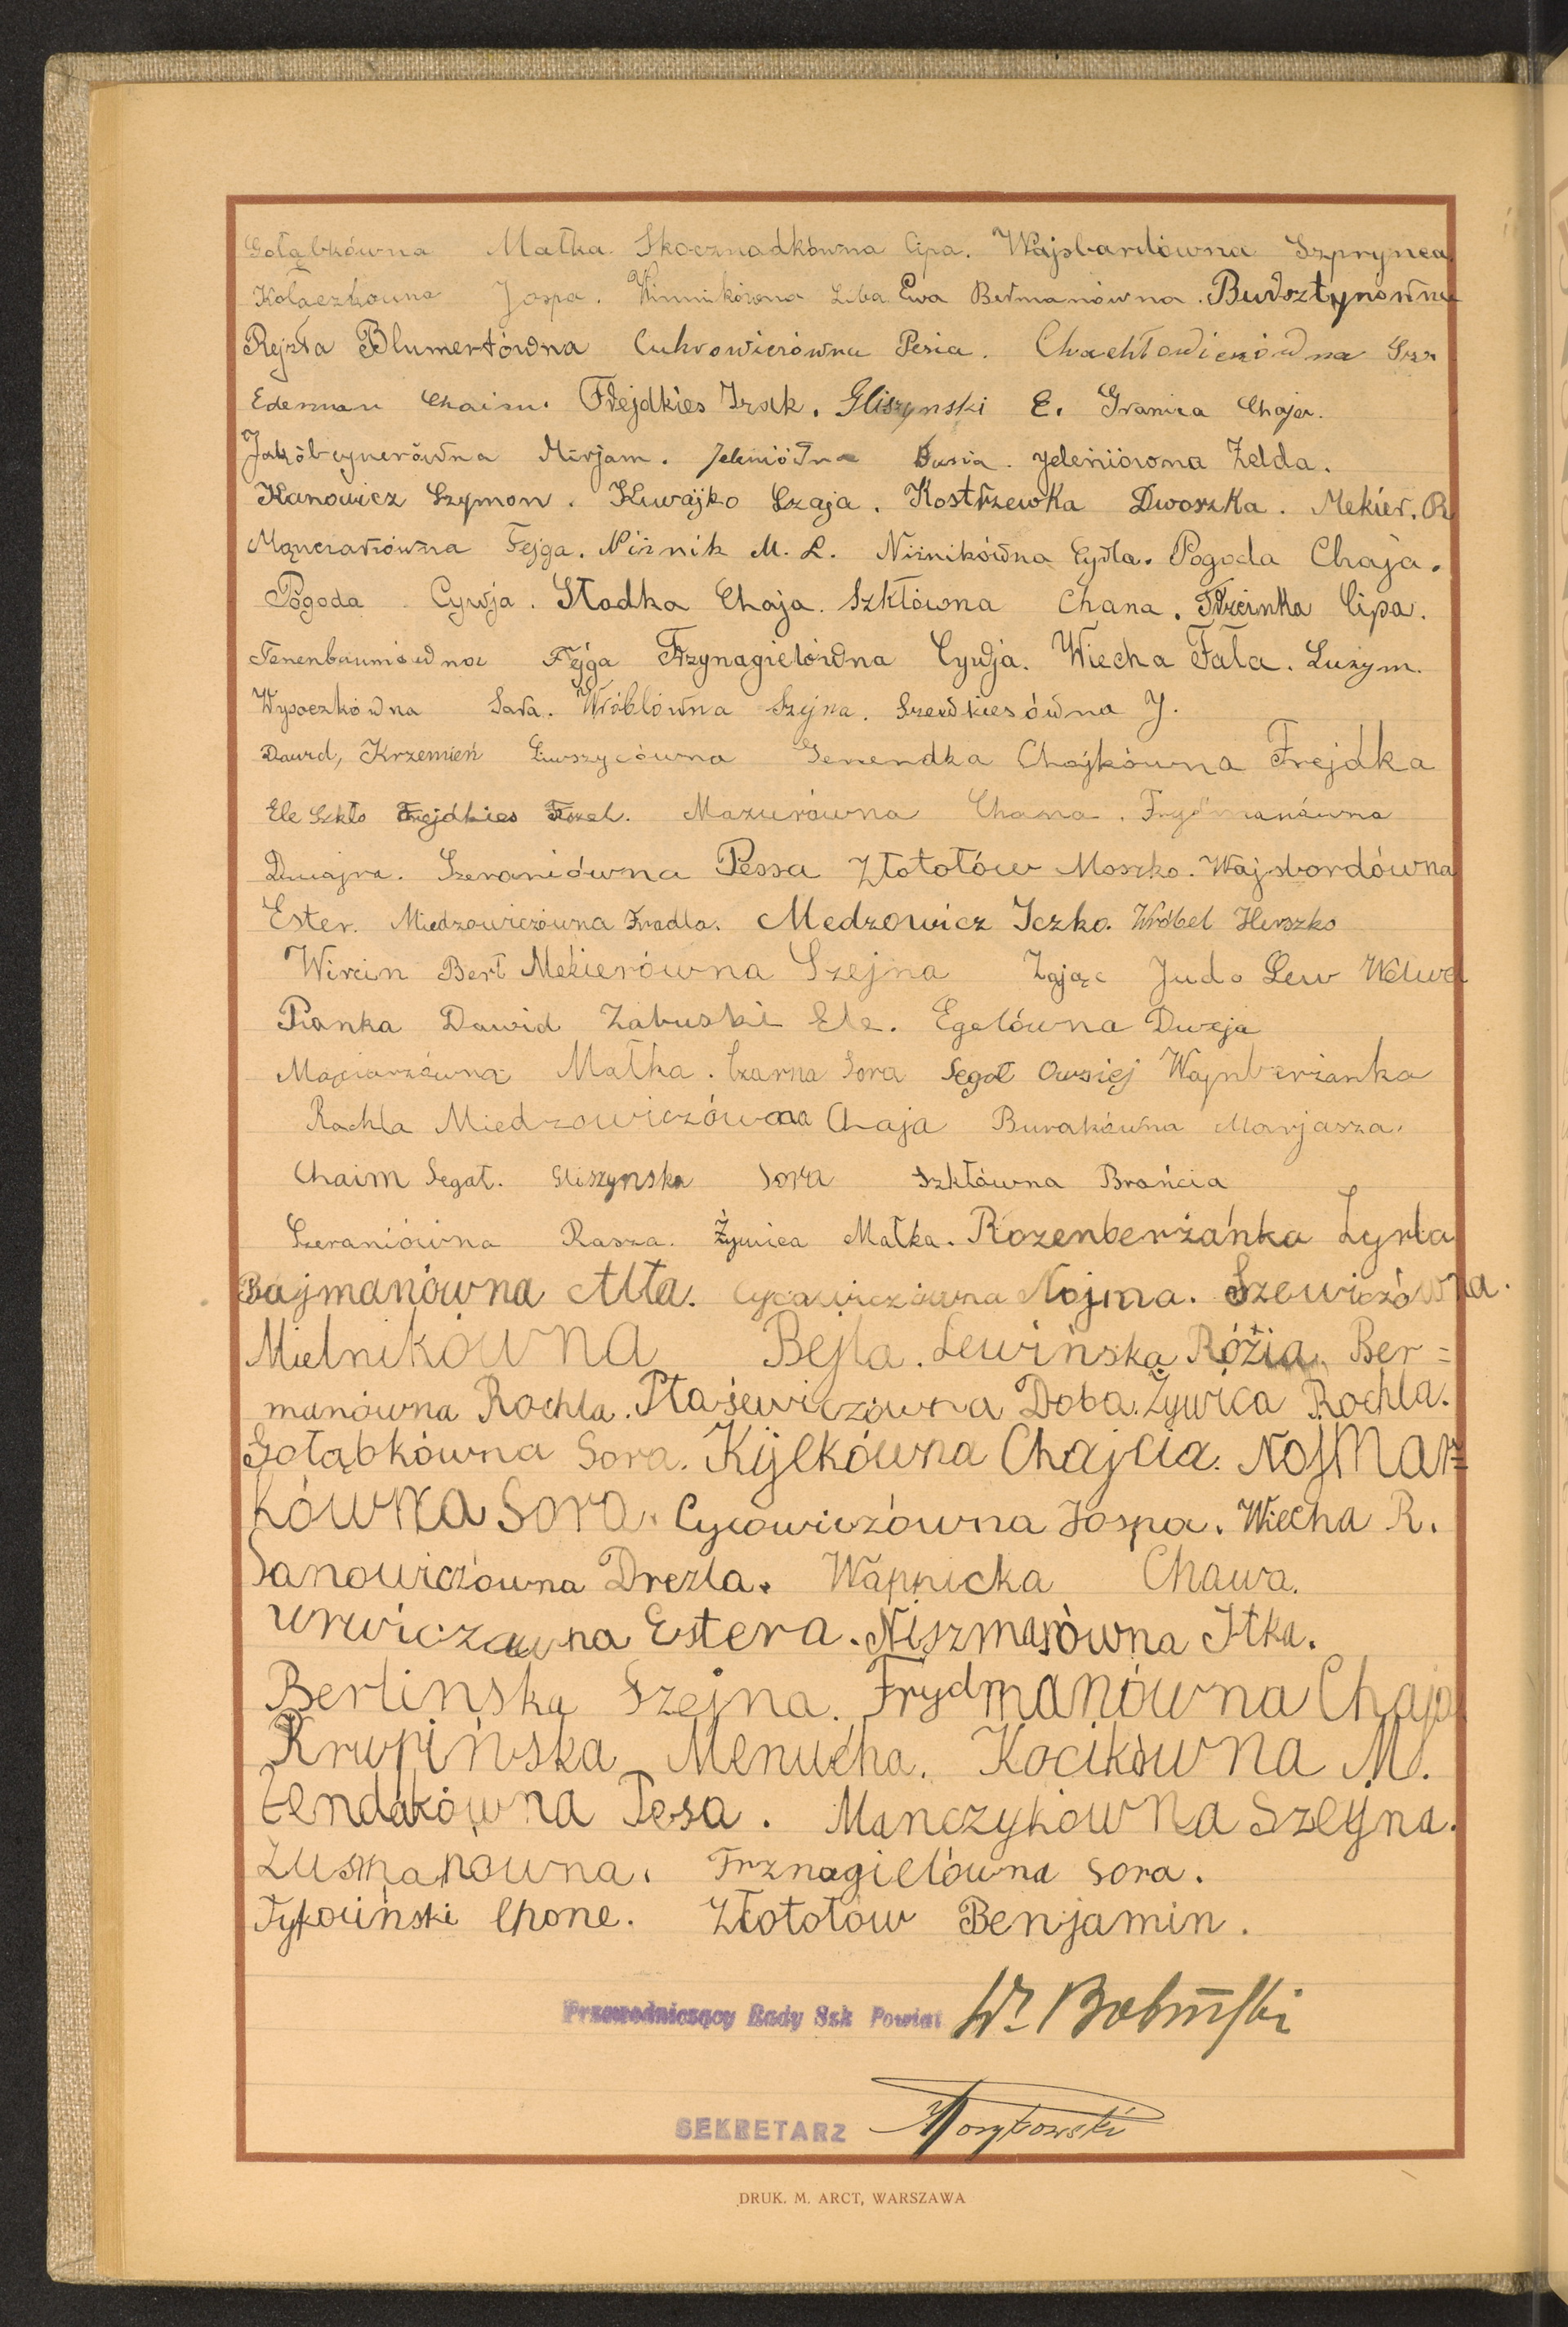 Gołąbkówna Małka Skocznadkówna Cipa. Wajsbardówna Szprynca
Kołaczkówna Jospa. Winnikówna Liba Ewa Bermanówna. Bursztynówna
Rejzła Blumertówna Cukrowiczówna Pesia. Chachłowiczówna
Ederman Chaim. Frejdkies Izak. Gliszynski E. Granica Chaja.
Jakóbcynerówna Mirjam. Jeleniówna Busia. Jeleniówna Zelda.
Kanowicz Szymon. Kuwajko Szaja. Kostrzewka Dwoszka. Mekier. R
Mączarzówna Fejga. Niżnik M. L. Niżnikówna Cyrla. Pogoda Chaja.
Pogoda Cywja. Słodka Chaja. Szkłówna Chana. Trzcinka Cipa.
Tenenbaumówna Fejga Trzynagielówna Cywja. Wiecha Fala.
Wysoczkówna Sara. Wróblówna Szejna. Szewkiesówna J.
Dawid, Krzemień Liwszycówna Genendka Chajkówna Frejdka
Ele Szkło Frejdkies Joszel. Mazurówna Chana. Frydmanówna
Dwajra. Szeraniówna Pessa Złotołów Moszko. Wajsbordówna
Ester. Miedzowiczówna Fradla. Medzowicz Iczko. Wróbel Herszko
Wircin Berł Mekierówna Szejna Zając Juda Lew Welwel
Pianka Dawid Zabuski Ele. Egelówna Dweja
Małka. Czarna Sora Segał Owsiej Wajnberżanka
Rachla Miedzowiczówna Chaja Burakówna Marjasza.
Chaim Segał. Gliszynska Sora Szkłówna Brańcia
Szeraniówna Rasza. Żywica Małka. Rozenberżánka Zyrla
Bajmanówna Ałta. Cycowiczówna Nojma. Szewiczówna.
Mielnikówna Bejla. Lewińska Róźia. Ber=
manówna Rochla. Ptasiewiczówna Doba. Żywica Rochla.
Gołąbkówna Sora. Kijlkówna Chajcia. Nojmar=
kówna Sora. Cycowiczówna Jospa. Wiecha R.
Janowiczówna Drezla. Wapnicka Chawa.
Urwiczówna Estera. Niszmanówna Itka.
Berlinska Szejna. Frydmanówna Chaja
Krupińska Menucha. Kocikówna M.
Łendakówna Pesa. Manczykówna Szejna.
Zusmanowna. Trznagielówna Sora.
Tykociński Chone. Złotołów Benjamin.
Przewodniczący Rady Szk Powiat
SEKRETARZ
DRUK. M. ARCT, WARSZAWA